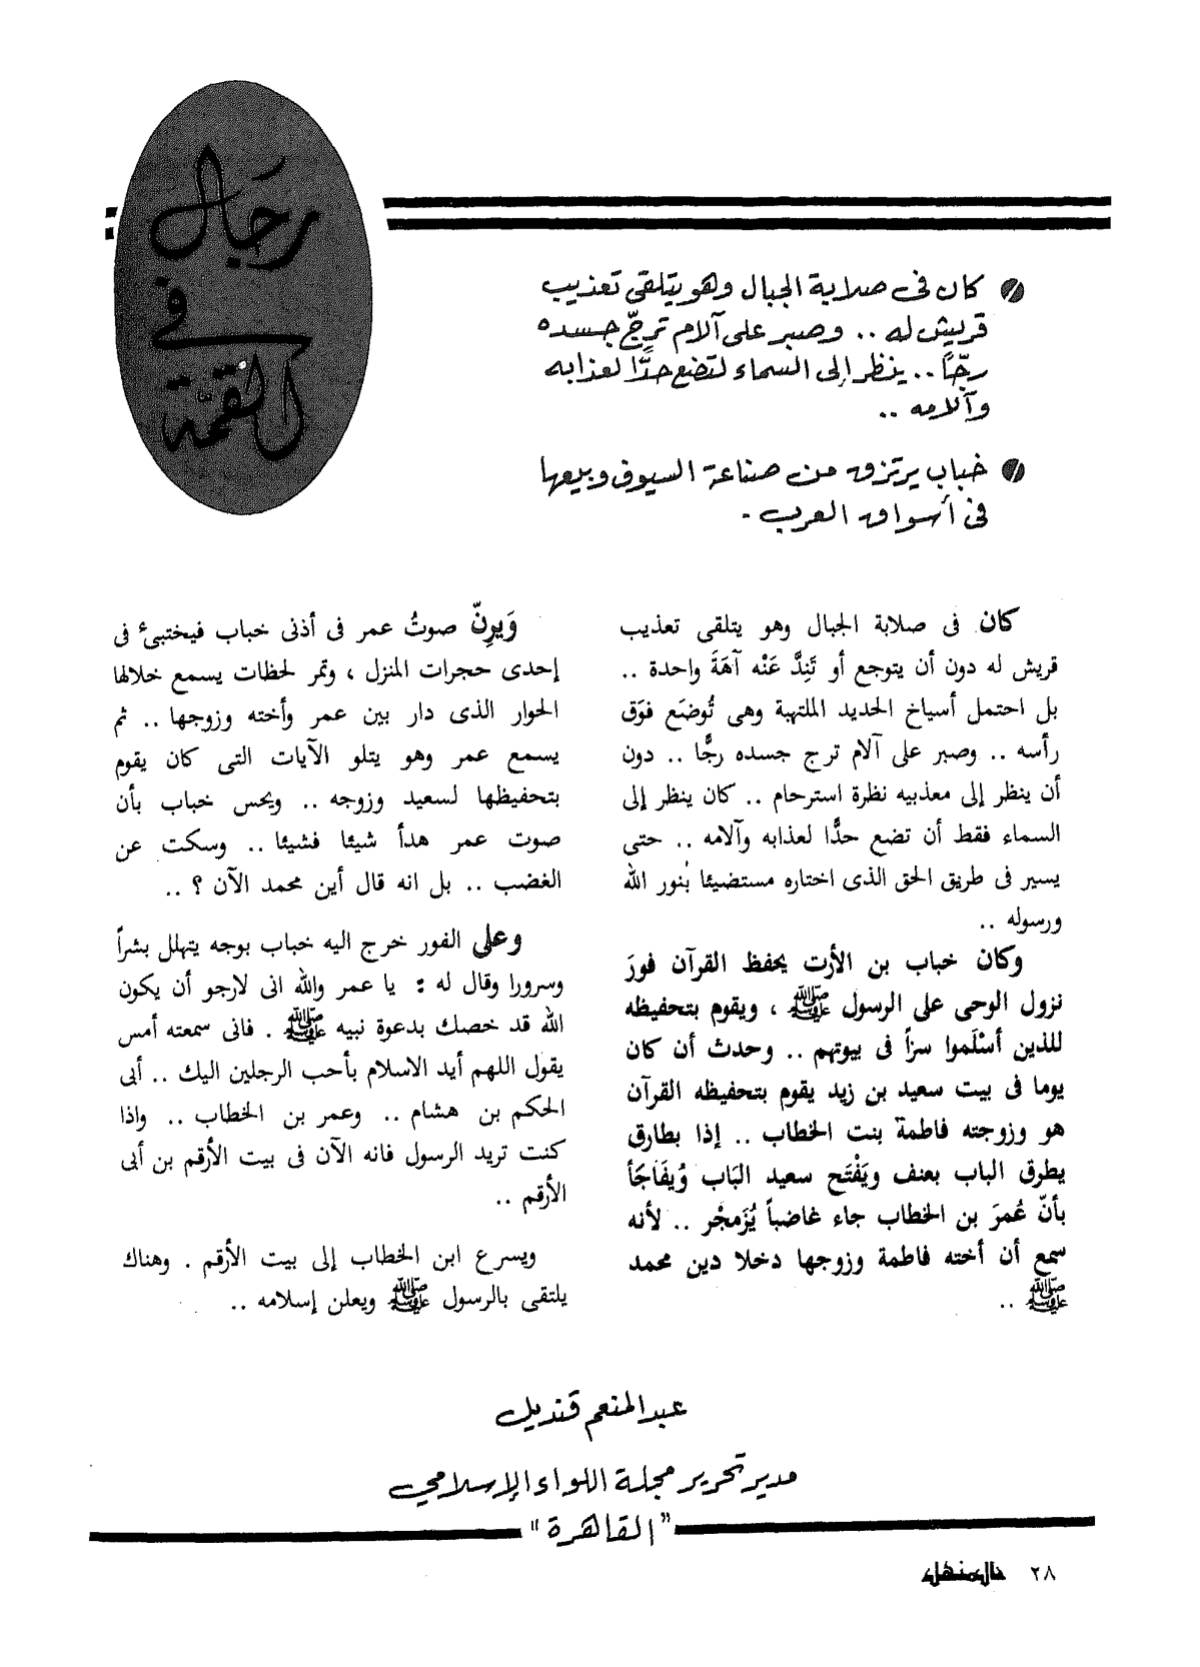 رجال
في
القمة
كان فى صلابة الجبال وهو يتلقى تعذيب
قريش له .. وصبر على آلام ترجّ جسده
رجّاً .. ينظر إلى السماء لتضع حدًّا لعذابه
وآلامه ..
خباب يرتزق من صناعة السيوف وبيعها
فى أسواق العرب .
كان فى صلابة الجبال وهو يتلقى تعذيب
قريش له دون أن يتوجع أو تَنِدَّ عَنْه آهَةَ واحدة ..
بل احتمل أسياخ الحديد الملتهبة وهى تُوضَع فوَق
رأسه .. وصبر على آلام ترج جسده رجًّا .. دون
أن ينظر إلى معذبيه نظرة استرحام .. كان ينظر إلى
السماء فقط أن تضع حدًّا لعذابه وآلامه .. حتى
يسير فى طريق الحق الذى اختاره مستضيئا بنور الله
ورسوله ..
وكان خباب بن الأرت يحفظ القرآن فورَ
نزول الوحى على الرسول ﷺ ، ويقوم بتحفيظه
للذين أسْلَموا سرَاً فى بيوتهم .. وحدث أن كان
يوما فى بيت سعيد بن زيد يقوم بتحفيظه القرآن
هو وزوجته فاطمة بنت الخطاب .. إذا بطارق
يطرق الباب بعنف ويَفْتَح سعيد البَاب وُيفَاجَأ
بأنّ عُمرَ بن الخطاب جاء غاضباً يُزَمجْر .. لأنه
سمع أن أخته فاطمة وزوجها دخلا دين محمد
ﷺ ..
وَيرِنّ صوتُ عمر فى أذنى خباب فيختبىء فى
إحدى حجرات المنزل ، وتمر لحظات يسمع خلالها
الحوار الذى دار بين عمر وأخته وزوجها .. ثم
يسمع عمر وهو يتلو الآيات التى كان يقوم
بتحفيظها لسعيد وزوجه .. ويحس خباب بأن
صوت عمر هدأ شيئا فشيئا .. وسكت عن
الغضب .. بل انه قال أين محمد الآن ؟ ..
وعلى الفور خرج اليه خباب بوجه يتهلل بشراً
وسرورا وقال له : يا عمر والله انى لارجو أن يكون
الله قد خصك بدعوة نبيه ﷺ . فانى سمعته أمس
يقول اللهم أيد الاسلام بأحب الرجلين اليك .. أبى
الحكم بن هشام .. وعمر بن الخطاب .. واذا
كنت تريد الرسول فانه الآن فى بيت الأرقم بن أبى
الأرقم ..
ويسرع ابن الخطاب إلى بيت الأرقم . وهناك
يلتقى بالرسول ﷺ ويعلن إسلامه ..
عبدالمنعم قنديل
مدير تحرير مجلة اللواء الإسلامي
"القاهرة"
٢٨ المنهل